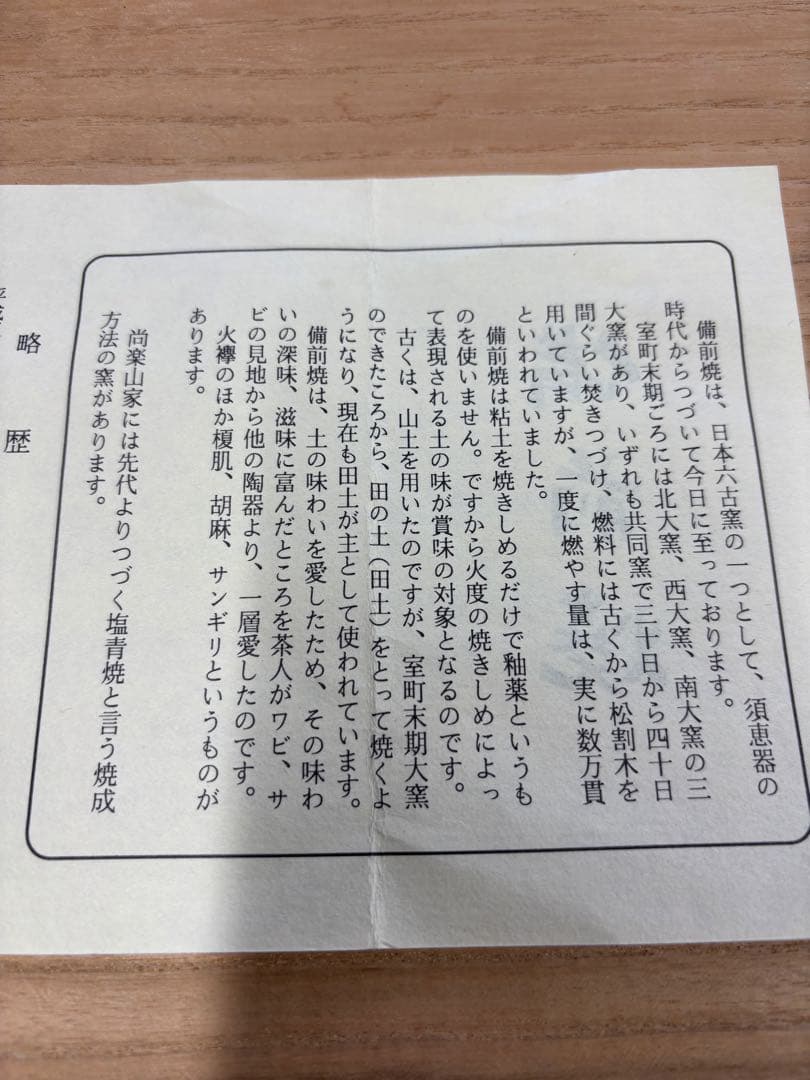 備前焼は、日本六古窯の一つとして、須恵器の
時代からつづいて今日に至っております。
室町末期ごろには北大窯、西大窯、南大窯の三
大窯があり、いずれも共同窯で三十日から四十日
間ぐらい焚きつづけ、燃料には古くから松割木を
用いていますが、一度に燃やす量は、実に数万貫
といわれていました。
備前焼は粘土を焼きしめるだけで釉薬というも
のを使いません。ですから火度の焼きしめによっ
て表現される土の味が賞味の対象となるのです。
古くは、山土を用いたのですが、室町末期大窯
のできたころから、田の土（田土）をとって焼くよ
うになり、現在も田土が主として使われています。
備前焼は、土の味わいを愛したため、その味わ
いの深味、滋味に富んだところを茶人がワビ、サ
ビの見地から他の陶器より、一層愛したのです。
火襷のほか榎肌、胡麻、サンギリというものが
あります。
尚楽山家には先代よりつづく塩青焼と言う焼成
方法の窯があります。
略歴